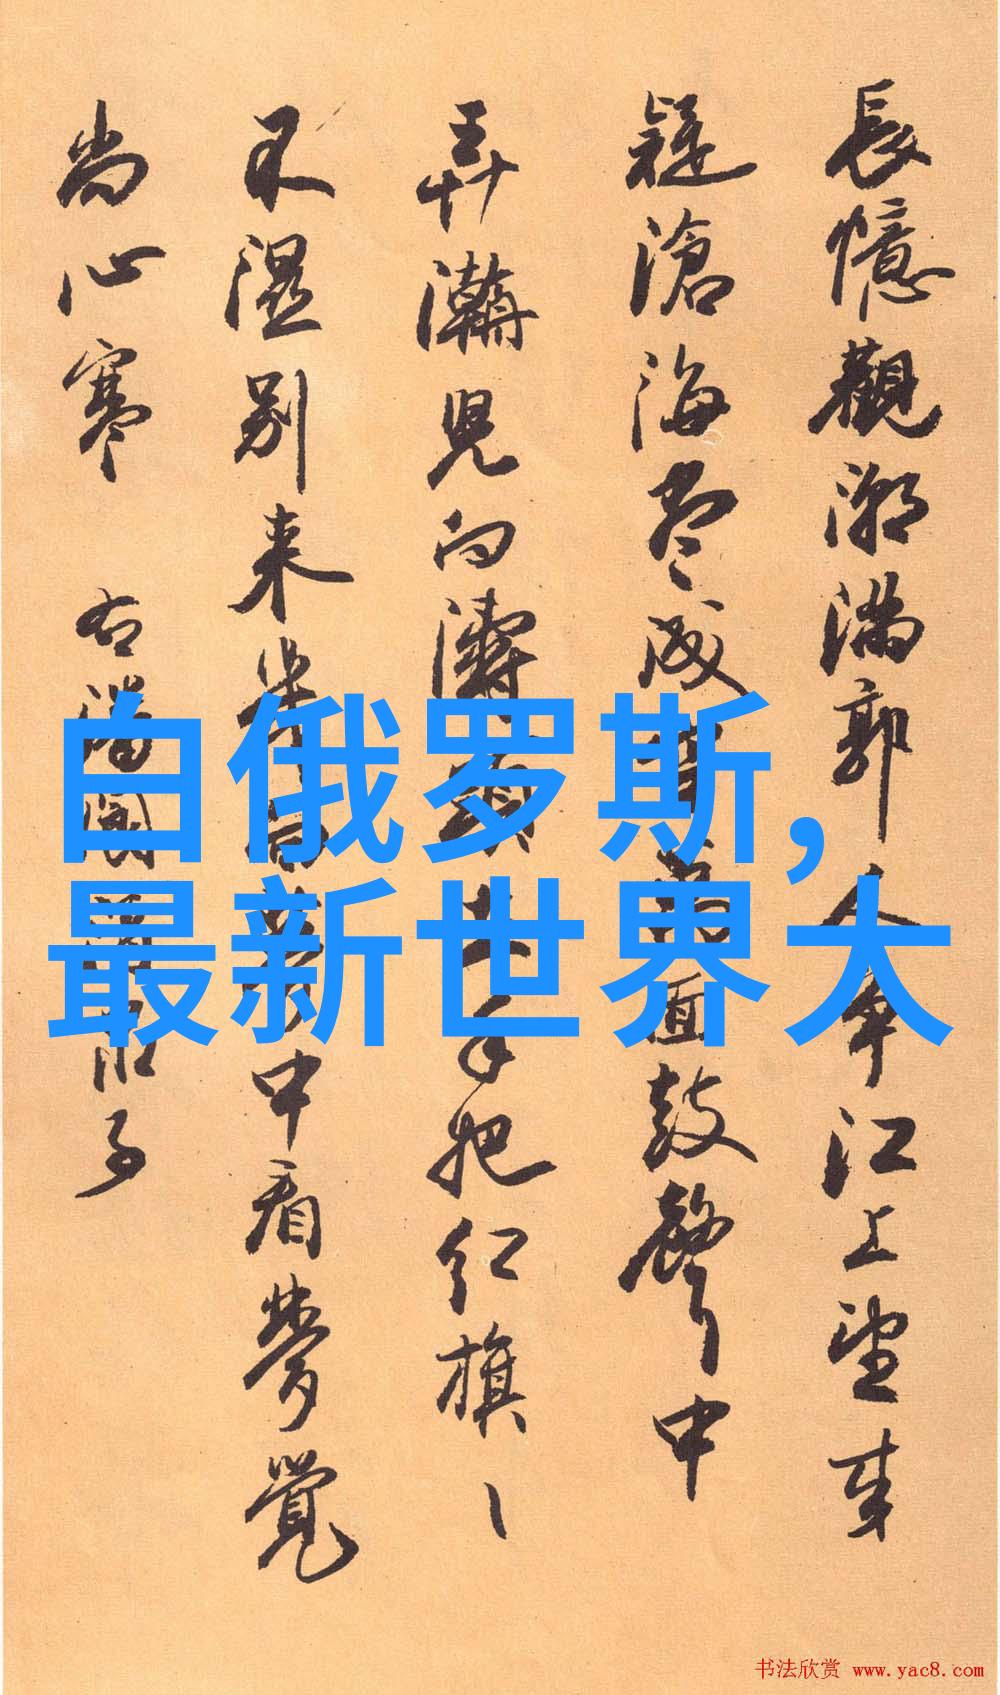 長憶觀潮滿郭人爭江上望来
疑滄海盡成空萬面鼓聲中
弄濤兒向濤頭立手把红旗旗
不濕別来幾向夢中看夢覺
尚心寒 右潘閬酒泉子
白俄罗斯,
最新世界大
书法欣赏 www.yac8.com